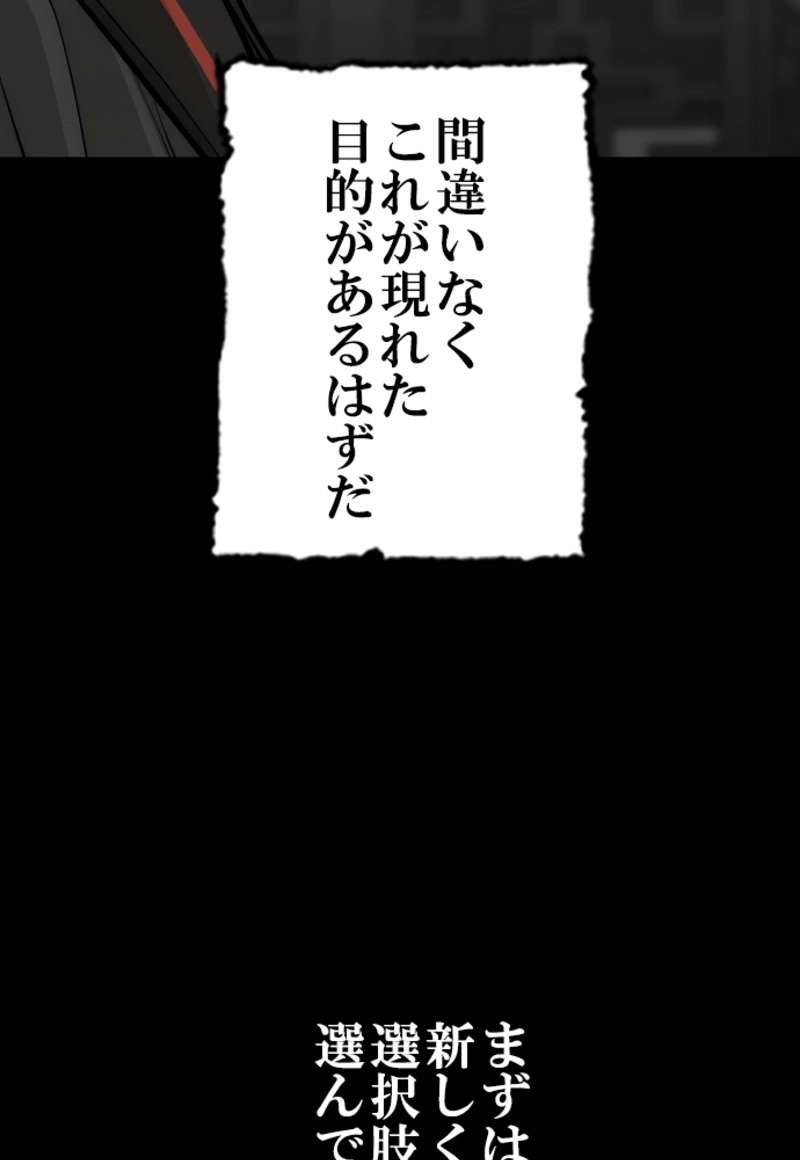 間違いなく
これが現れた
目的があるはずだ
まずは
新しく
選択肢
選んで